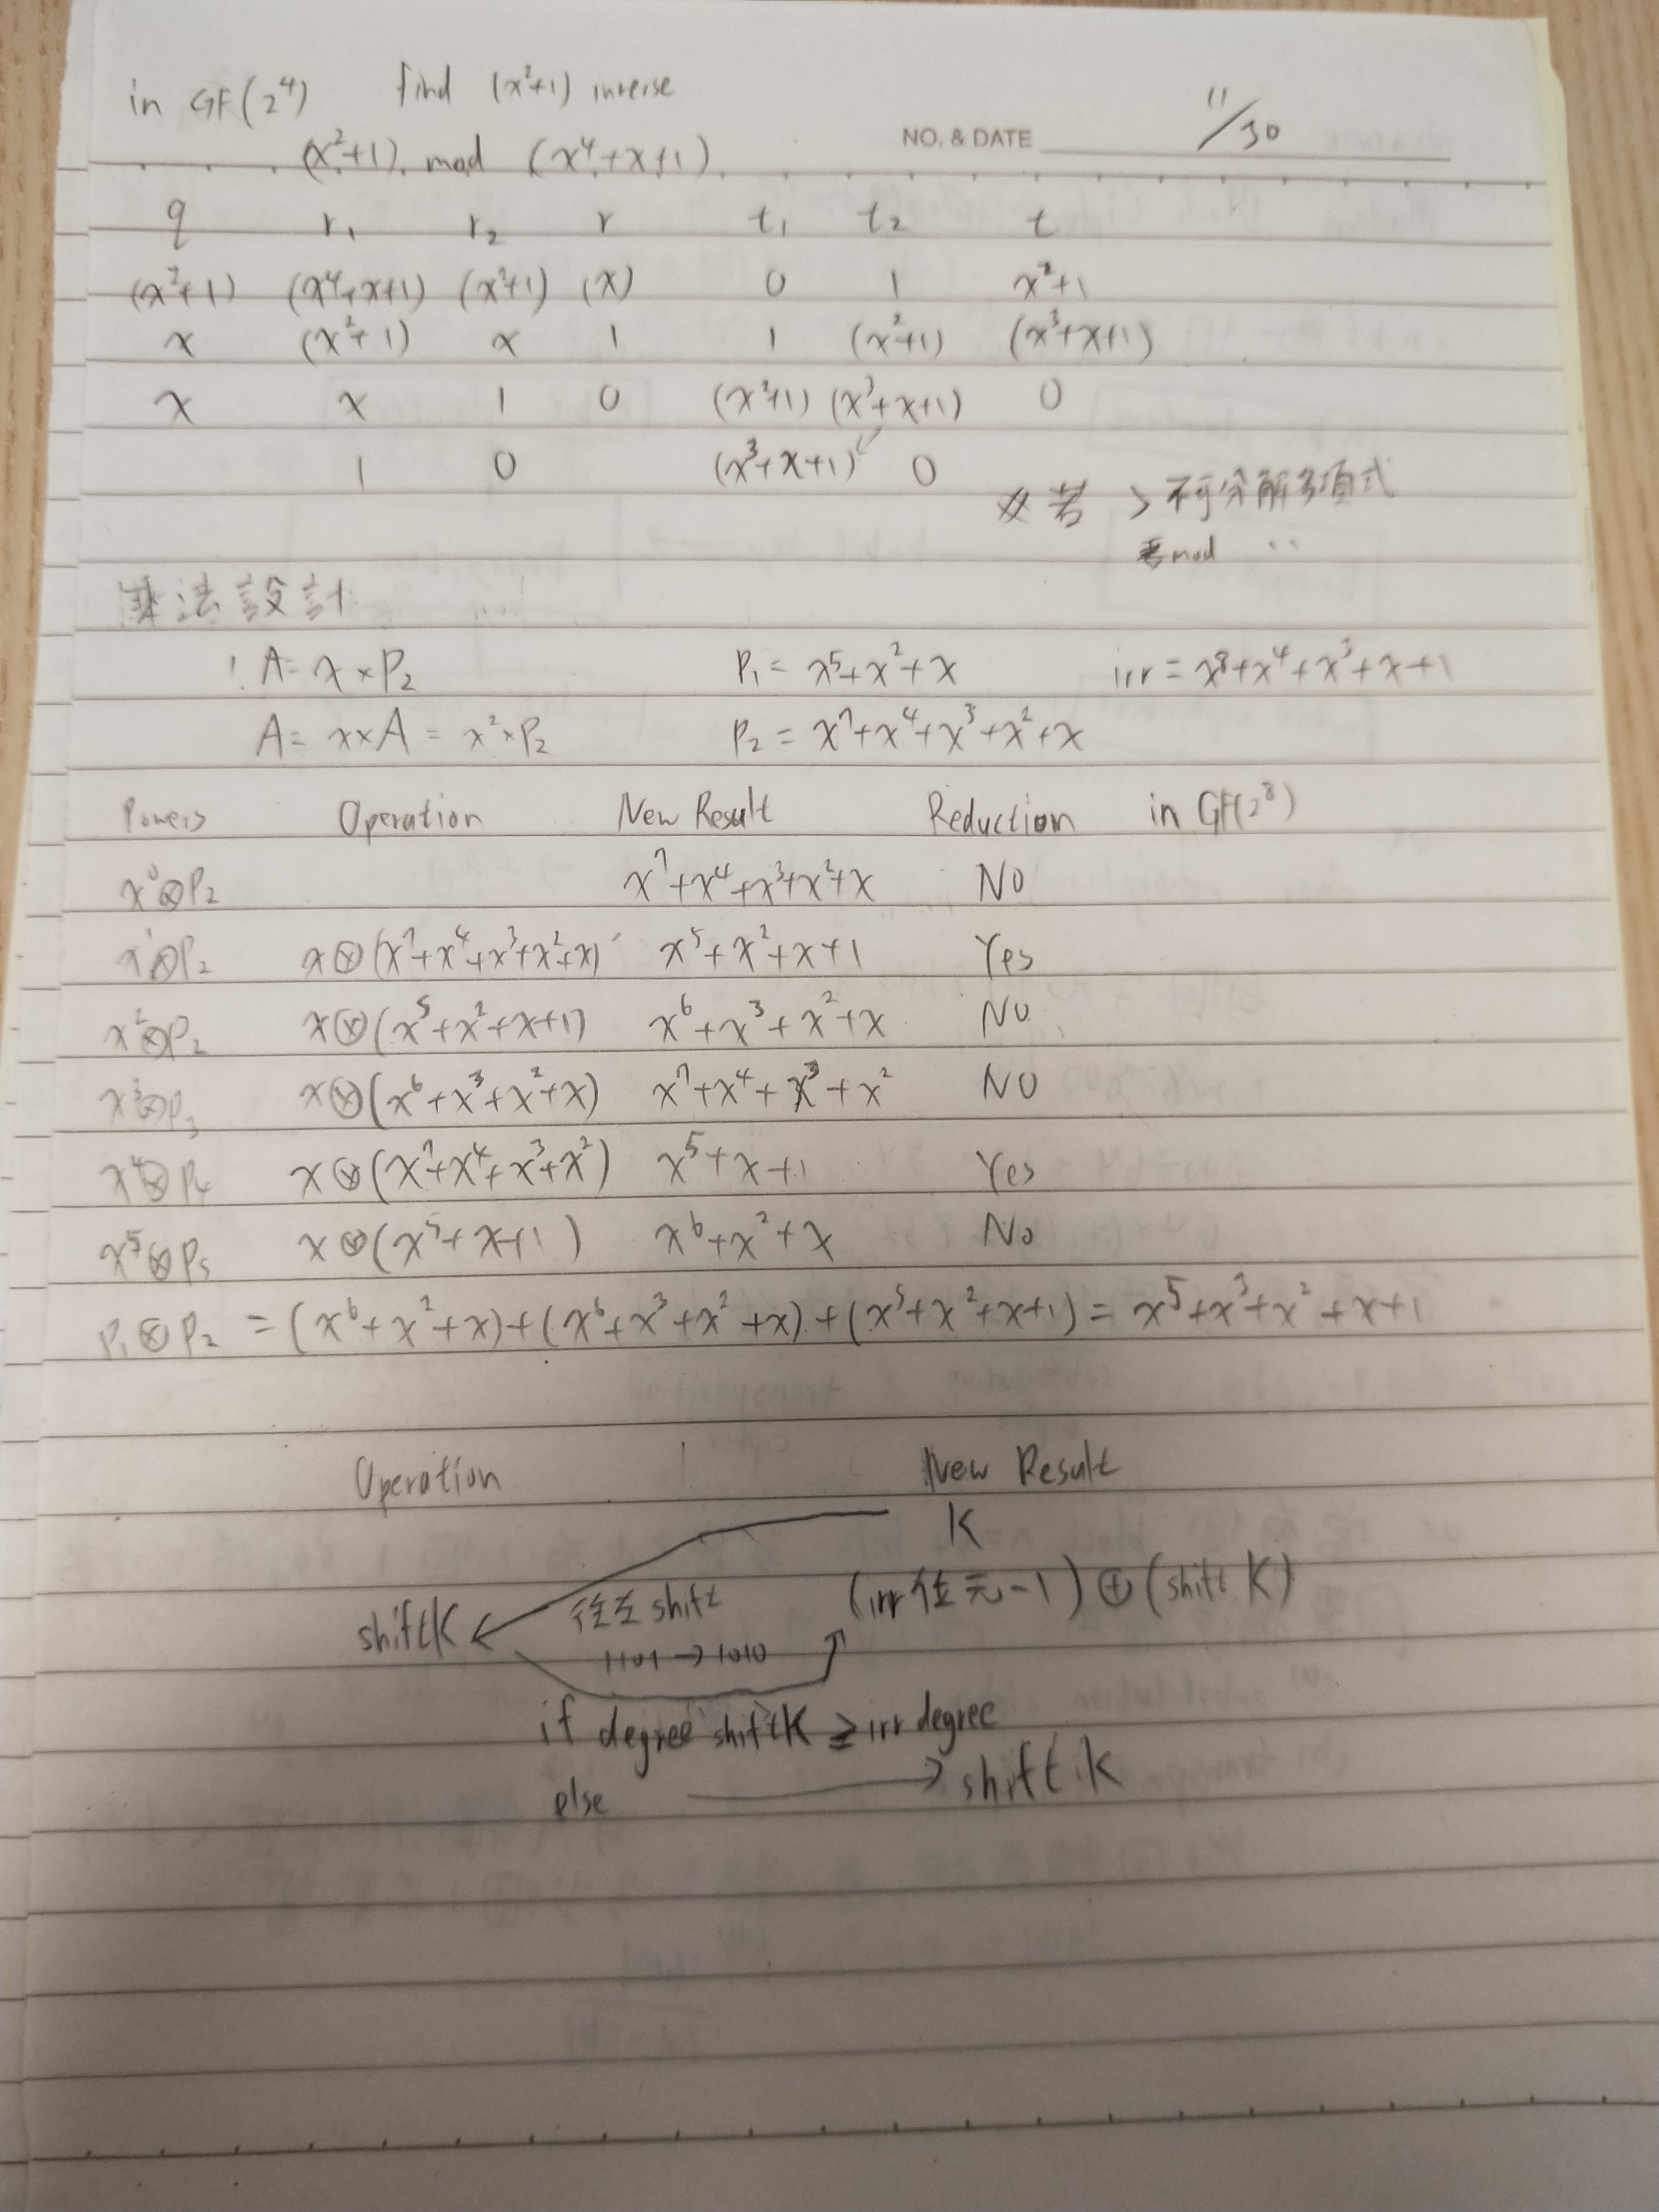 in GF(2⁴) find (x²+1) inverse
NO. & DATE 11/30
(x²+1) mod (x⁴+x+1)
q r₁ r₂ r t₁ t₂ t
(x²+1) (x⁴+x+1) (x²+1) (x) 0 1 x²+1
x (x²+1) x 1 1 (x²+1) (x³+x+1)
x x 1 0 (x²+1) (x³+x+1) 0
1 0 (x³+x+1) 0
必考 > 不可分解多項式
考mod ..
乘法設計
A = x × P₂ P₁ = x⁵+x²+x irr = x⁸+x⁴+x³+x+1
A = x×A = x²×P₂ P₂ = x⁷+x⁴+x³+x²+x
Powers Operation New Result Reduction in GF(2⁸)
x⁰⊗P₂ x⁷+x⁴+x³+x²+x NO
x¹⊗P₂ x⊗(x⁷+x⁴+x³+x²+x) x⁵+x²+x+1 Yes
x²⊗P₂ x⊗(x⁵+x²+x+1) x⁶+x³+x²+x NO
x³⊗P₃ x⊗(x⁶+x³+x²+x) x⁷+x⁴+x³+x² NO
x⁴⊗P₄ x⊗(x⁷+x⁴+x³+x²) x⁵+x+1 Yes
x⁵⊗P₅ x⊗(x⁵+x+1) x⁶+x²+x No
P₁⊗P₂ = (x⁶+x²+x)+(x⁶+x³+x²+x)+(x⁵+x²+x+1) = x⁵+x³+x²+x+1
Operation New Result
K
shiftK 往左shift (irr位元-1)⊕(shift K)
1101→1010
if degree shiftK ≥ irr degree
else → shift K